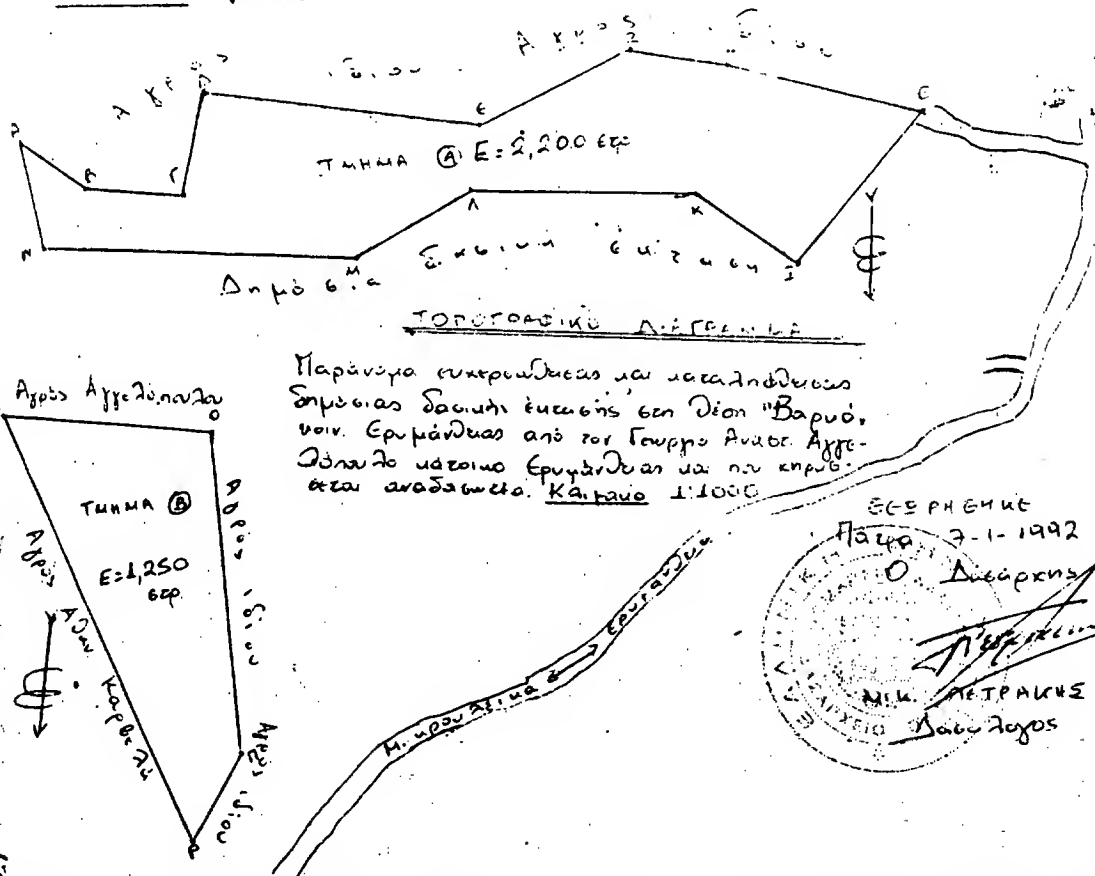 Αγρός ιδίου Αγρός ιδίου
Δ Ε Ζ Θ
Α Β Γ
ΤΜΗΜΑ Ⓐ Ε=2,200 στρ
Λ Κ Ι
Ν Μ
Δημόσια δασική έκταση
ΤΟΠΟΓΡΑΦΙΚΟ ΔΙΑΓΡΑΜΜΑ
Παράνομα εκχερσωθείσας και καταληφθείσας
δημόσιας δασικής έκτασης στη θέση "Βαρυό,
κοιν. Ερυμάνθειας από τον Γεώργιο Αναστ. Αγγε-
λόπουλο κάτοικο Ερυμάνθειας και που κηρύσ-
σεται αναδασωτέα. Κλίμακα 1:1000
Αγρός Αγγελόπουλου
Ο
ΤΜΗΜΑ Ⓑ
Ε=1,250
στρ.
Αγρός ιδίου
Αγρός ιδίου
Αγρός Αθαν. Καρβελά
Ρ
Μικρουλέικα
Ερυμάνθεια
ΘΕΩΡΗΘΗΚΕ
Πάτρα 7-1-1992
Ο Δασάρχης
ΝΙΚ. ΠΕΤΡΑΚΗΣ
Δασολόγος